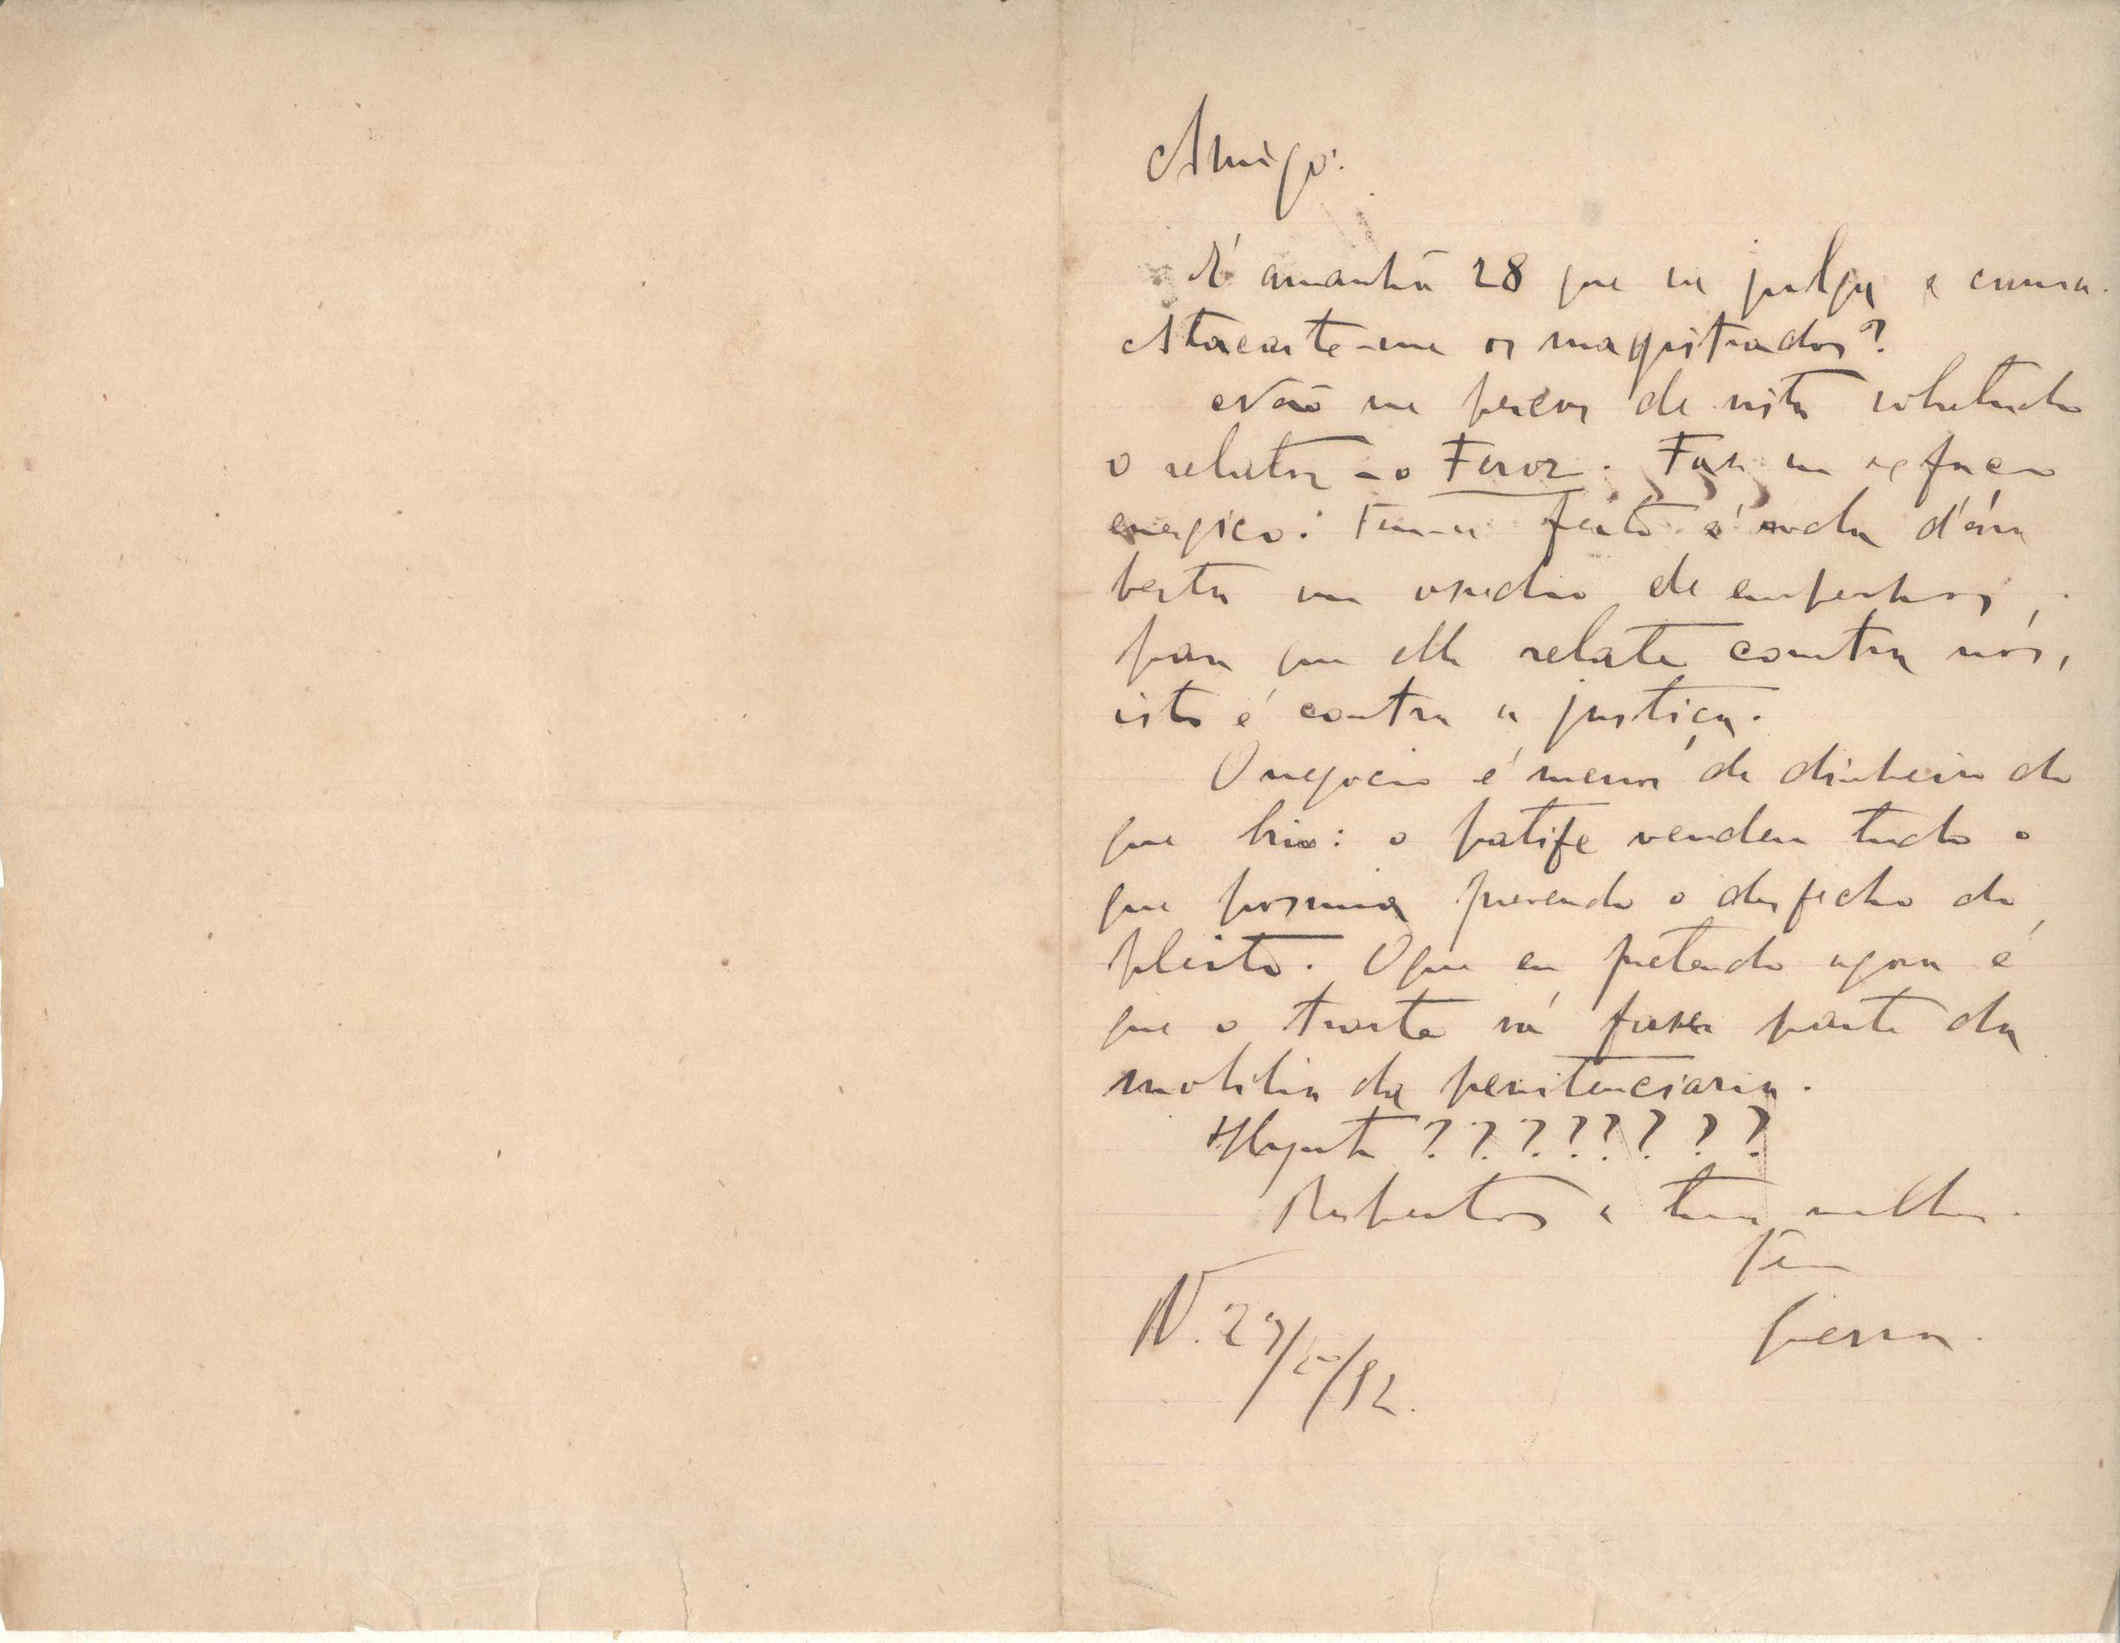 Amigo.
É amanhã 28 que se julga a causa.
Atacaste-me os magistrados?
Não me percas de vista sobretudo
o relator - o Feroz. Faze um esforço
energico: tem-se feito á roda d'esta
besta um de empenhos,
para que elle relate contra nós,
isto é contra a justiça.
O negocio é menos de dinheiro do
que brio: o patife vendeu tudo o
que possuia prevendo o desfecho do
pleito. O que eu pretendo agora é
que o traste vá fazer parte da
mobilia da penitenciaria.
Hypoth ????????
Respeitos a tua mulher.
Teu
N. 27/10/92.